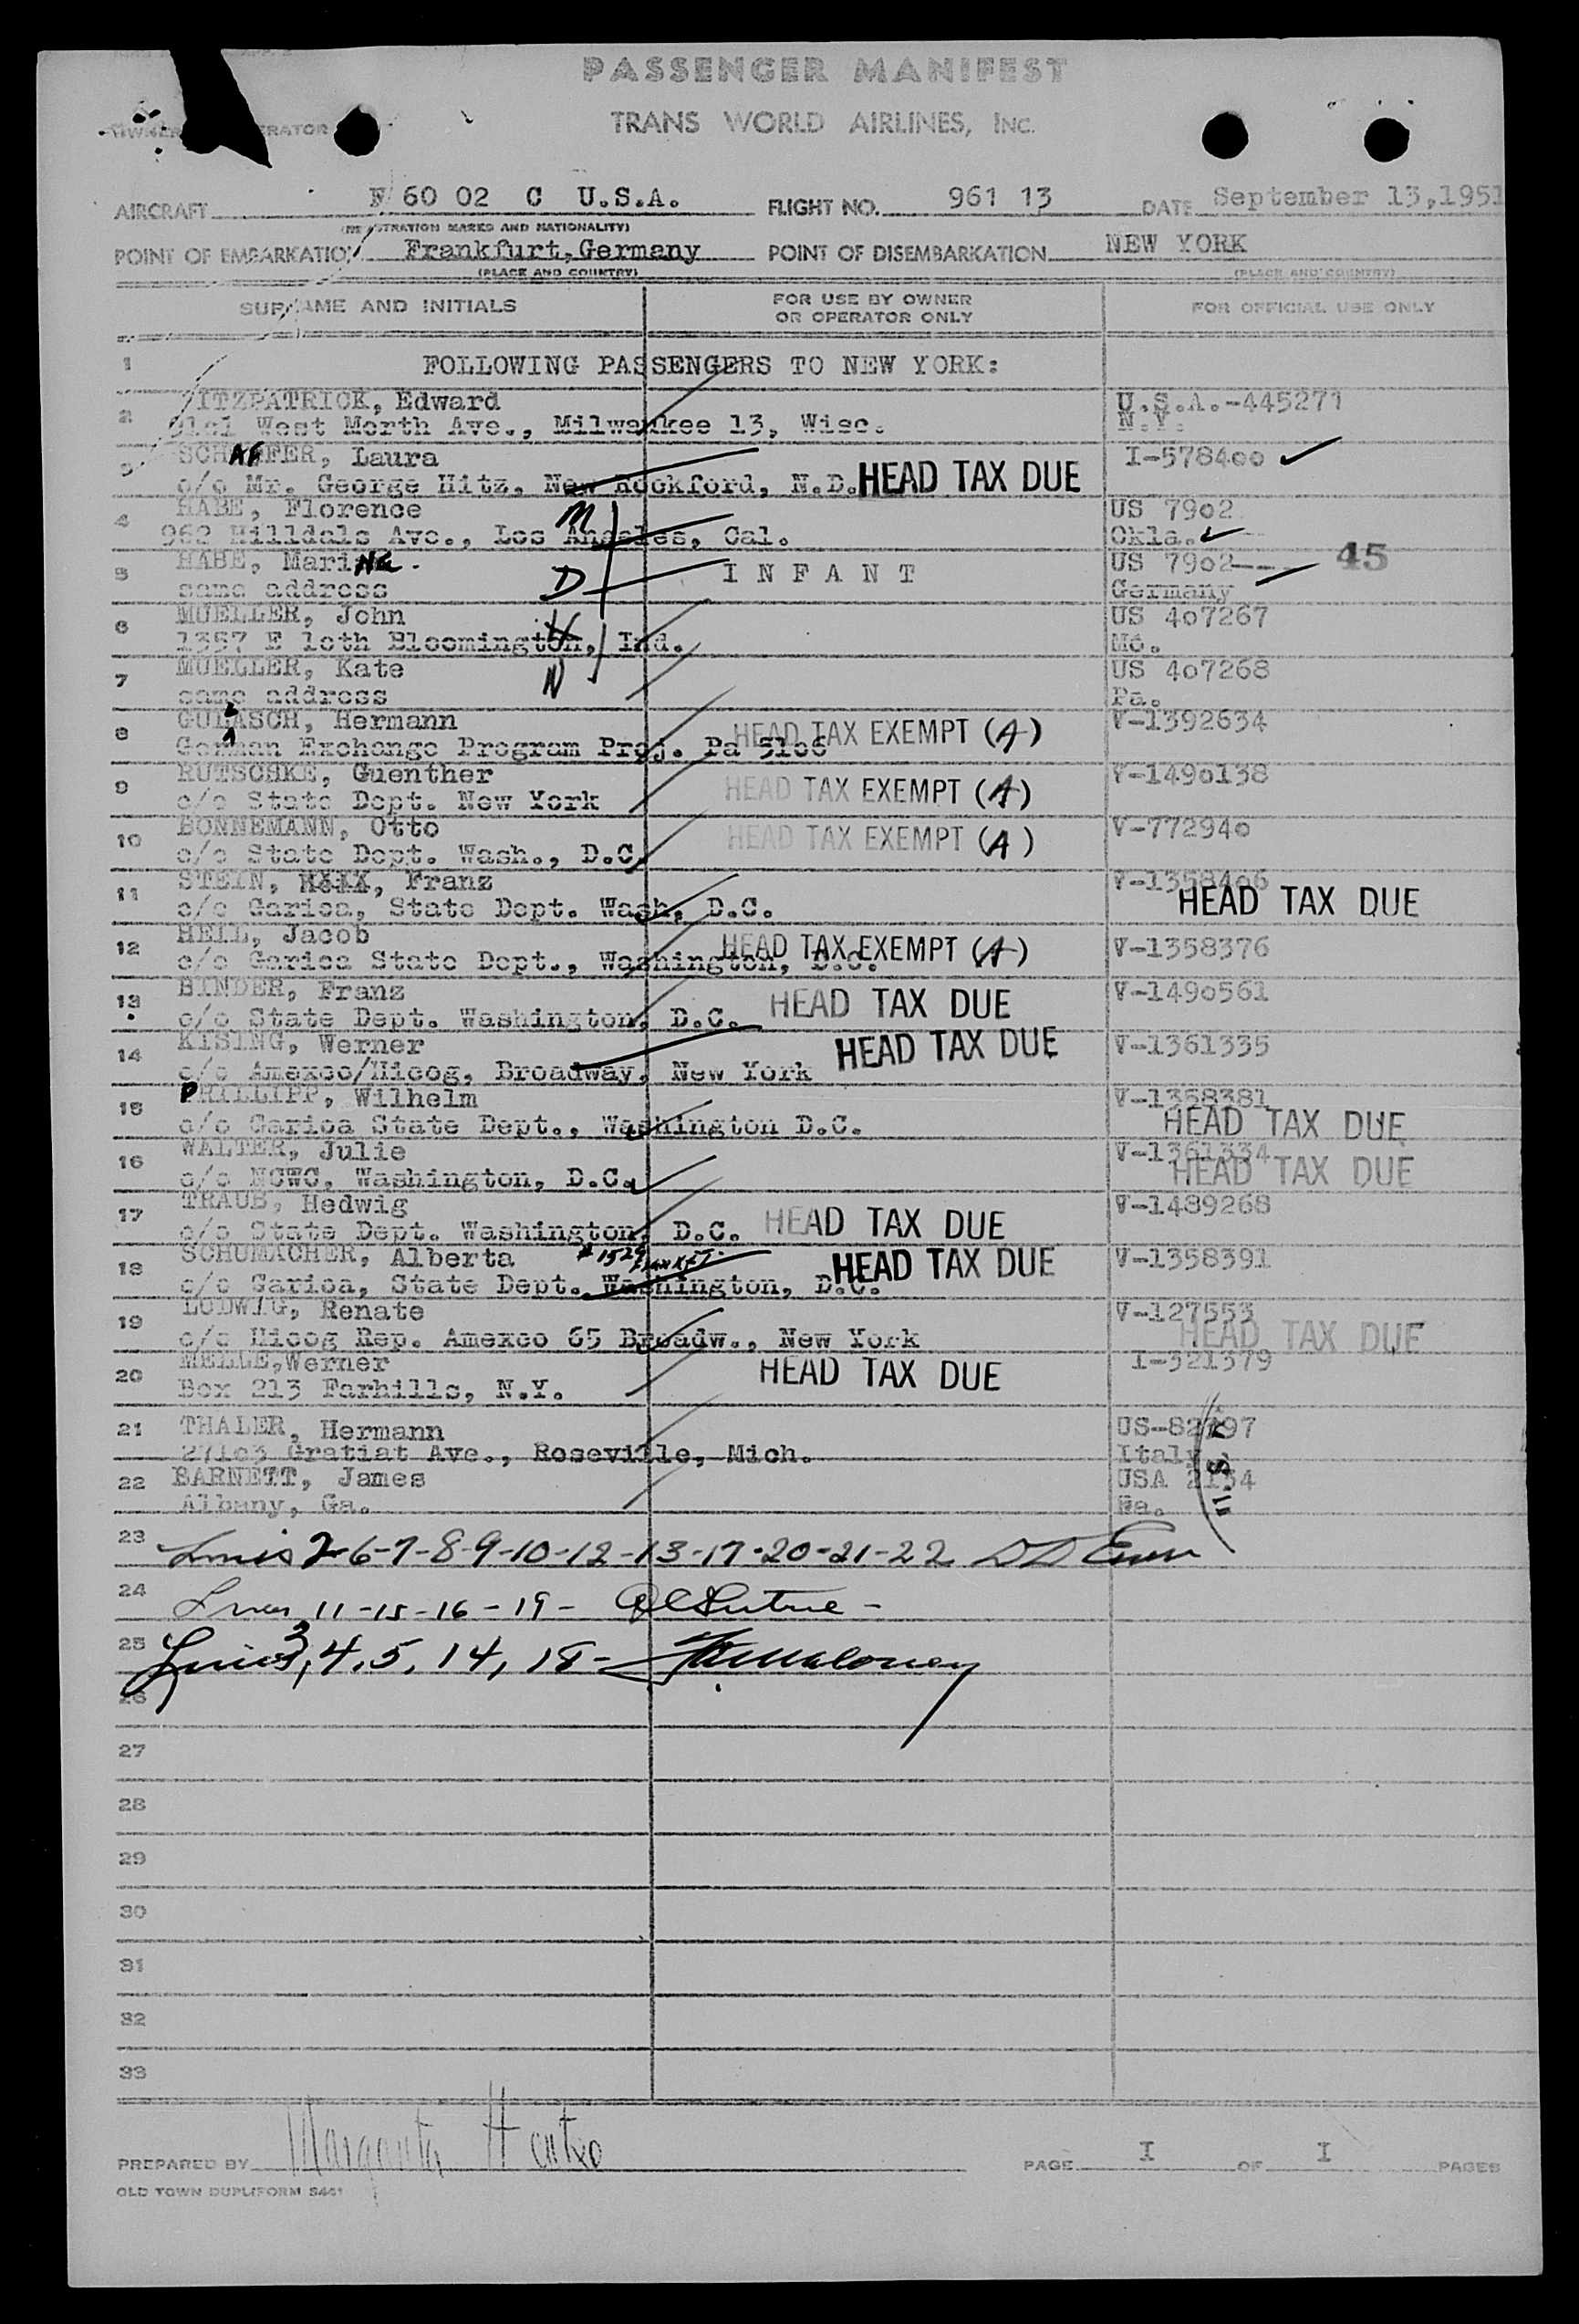 PASSENGER MANIFEST
TRANS WORLD AIRLINES, INC.
AIRCRAFT F 60 02 C U.S.A. FLIGHT NO. 961 13 DATE September 13,1951
(REGISTRATION MARKS AND NATIONALITY)
POINT OF EMBARKATION Frankfurt, Germany POINT OF DISEMBARKATION NEW YORK
(PLACE AND COUNTRY) (PLACE AND COUNTRY)
SURNAME AND INITIALS FOR USE BY OWNER OR OPERATOR ONLY FOR OFFICIAL USE ONLY
1 FOLLOWING PASSENGERS TO NEW YORK:
2 FITZPATRICK, Edward U.S.A.-445271
West North Ave., Milwaukee 13, Wisc. N.Y.
3 SCHAFFER, Laura I-578400
c/o Mr. George Hitz, New Rockford, N.D. HEAD TAX DUE
4 HABE, Florence M US 7902
962 Hilldale Ave., Los Angeles, Cal. Okla.
5 HABE, Marina. D INFANT US 7902--- 45
same address Germany
6 MUELLER, John US 407267
1357 E 10th Bloomington, Ind. Mo.
7 MUELLER, Kate US 407268
same address Pa.
8 GULASCH, Hermann HEAD TAX EXEMPT (A) V-1392634
German Exchange Program Proj. Pa 5106
9 RUTSCHKE, Guenther HEAD TAX EXEMPT (A) V-1490138
c/o State Dept. New York
10 BONNEMANN, Otto HEAD TAX EXEMPT (A) V-772940
c/o State Dept. Wash., D.C.
11 STEIN, Franz V-1358406
c/o Garioa, State Dept. Wash, D.C. HEAD TAX DUE
12 HELL, Jacob HEAD TAX EXEMPT (A) V-1358376
c/o Garioa State Dept., Washington, D.C.
13 BINDER, Franz HEAD TAX DUE V-1490561
c/o State Dept. Washington, D.C.
14 KISING, Werner HEAD TAX DUE V-1361335
c/o Amexco/Hicog, Broadway, New York
15 PHILLIPP, Wilhelm V-1358381
c/o Garioa State Dept., Washington D.C. HEAD TAX DUE
16 WALTER, Julie V-1361334
c/o NCWC, Washington, D.C. HEAD TAX DUE
17 TRAUB, Hedwig HEAD TAX DUE V-1489268
c/o State Dept. Washington, D.C.
18 SCHUMACHER, Alberta HEAD TAX DUE V-1358391
c/o Garioa, State Dept. Washington, D.C.
19 LUDWIG, Renate V-127553
c/o Hicog Rep. Amexco 65 Broadw., New York HEAD TAX DUE
20 MELLE, Werner HEAD TAX DUE I-321379
Box 213 Farhills, N.Y.
21 THALER, Hermann US-82197
27103 Gratiat Ave., Roseville, Mich. Italy
22 BARNETT, James USA 2154
Albany, Ga.
23 Lines 2-6-7-8-9-10-12-13-17-20-21-22
24 Lines 11-15-16-19-
25 Lines 3, 4, 5, 14, 18- Maloney
26
27
28
29
30
31
32
33
PREPARED BY PAGE I OF I PAGES
OLD TOWN DUPLIFORM